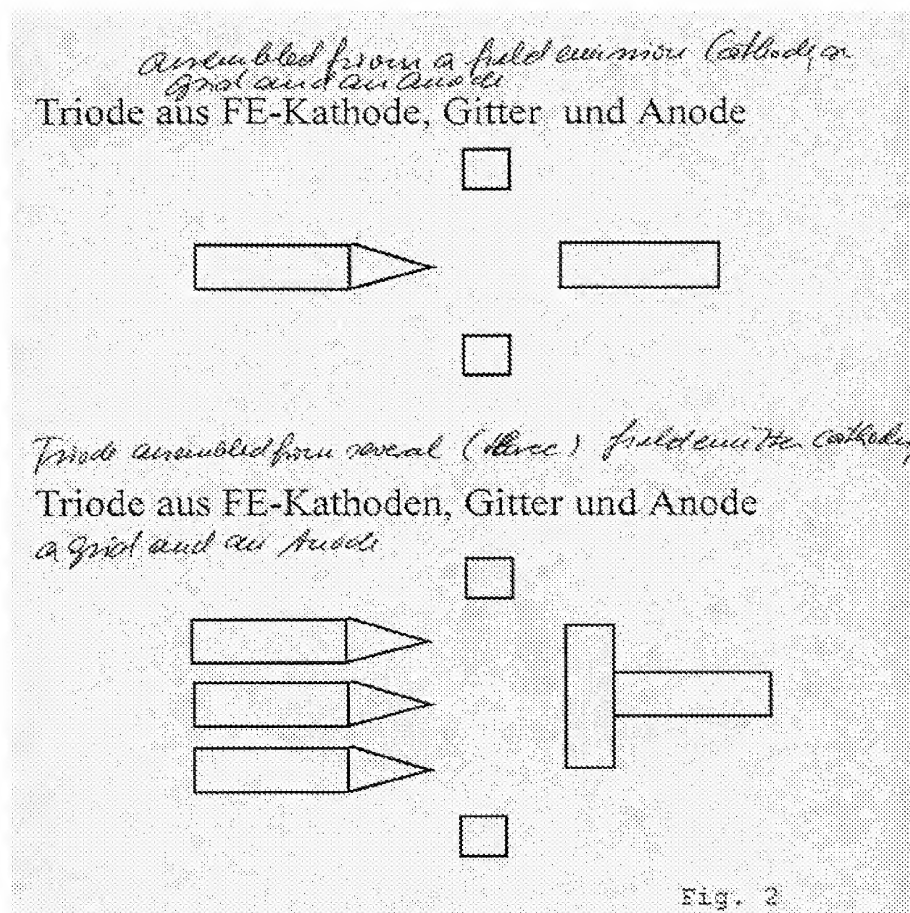 assembled from a field emission Cathode, a
grid and an anode
Triode aus FE-Kathode, Gitter und Anode
Triode assembled from several (three) field emitter cathodes
Triode aus FE-Kathoden, Gitter und Anode
a grid and an Anode
Fig. 2